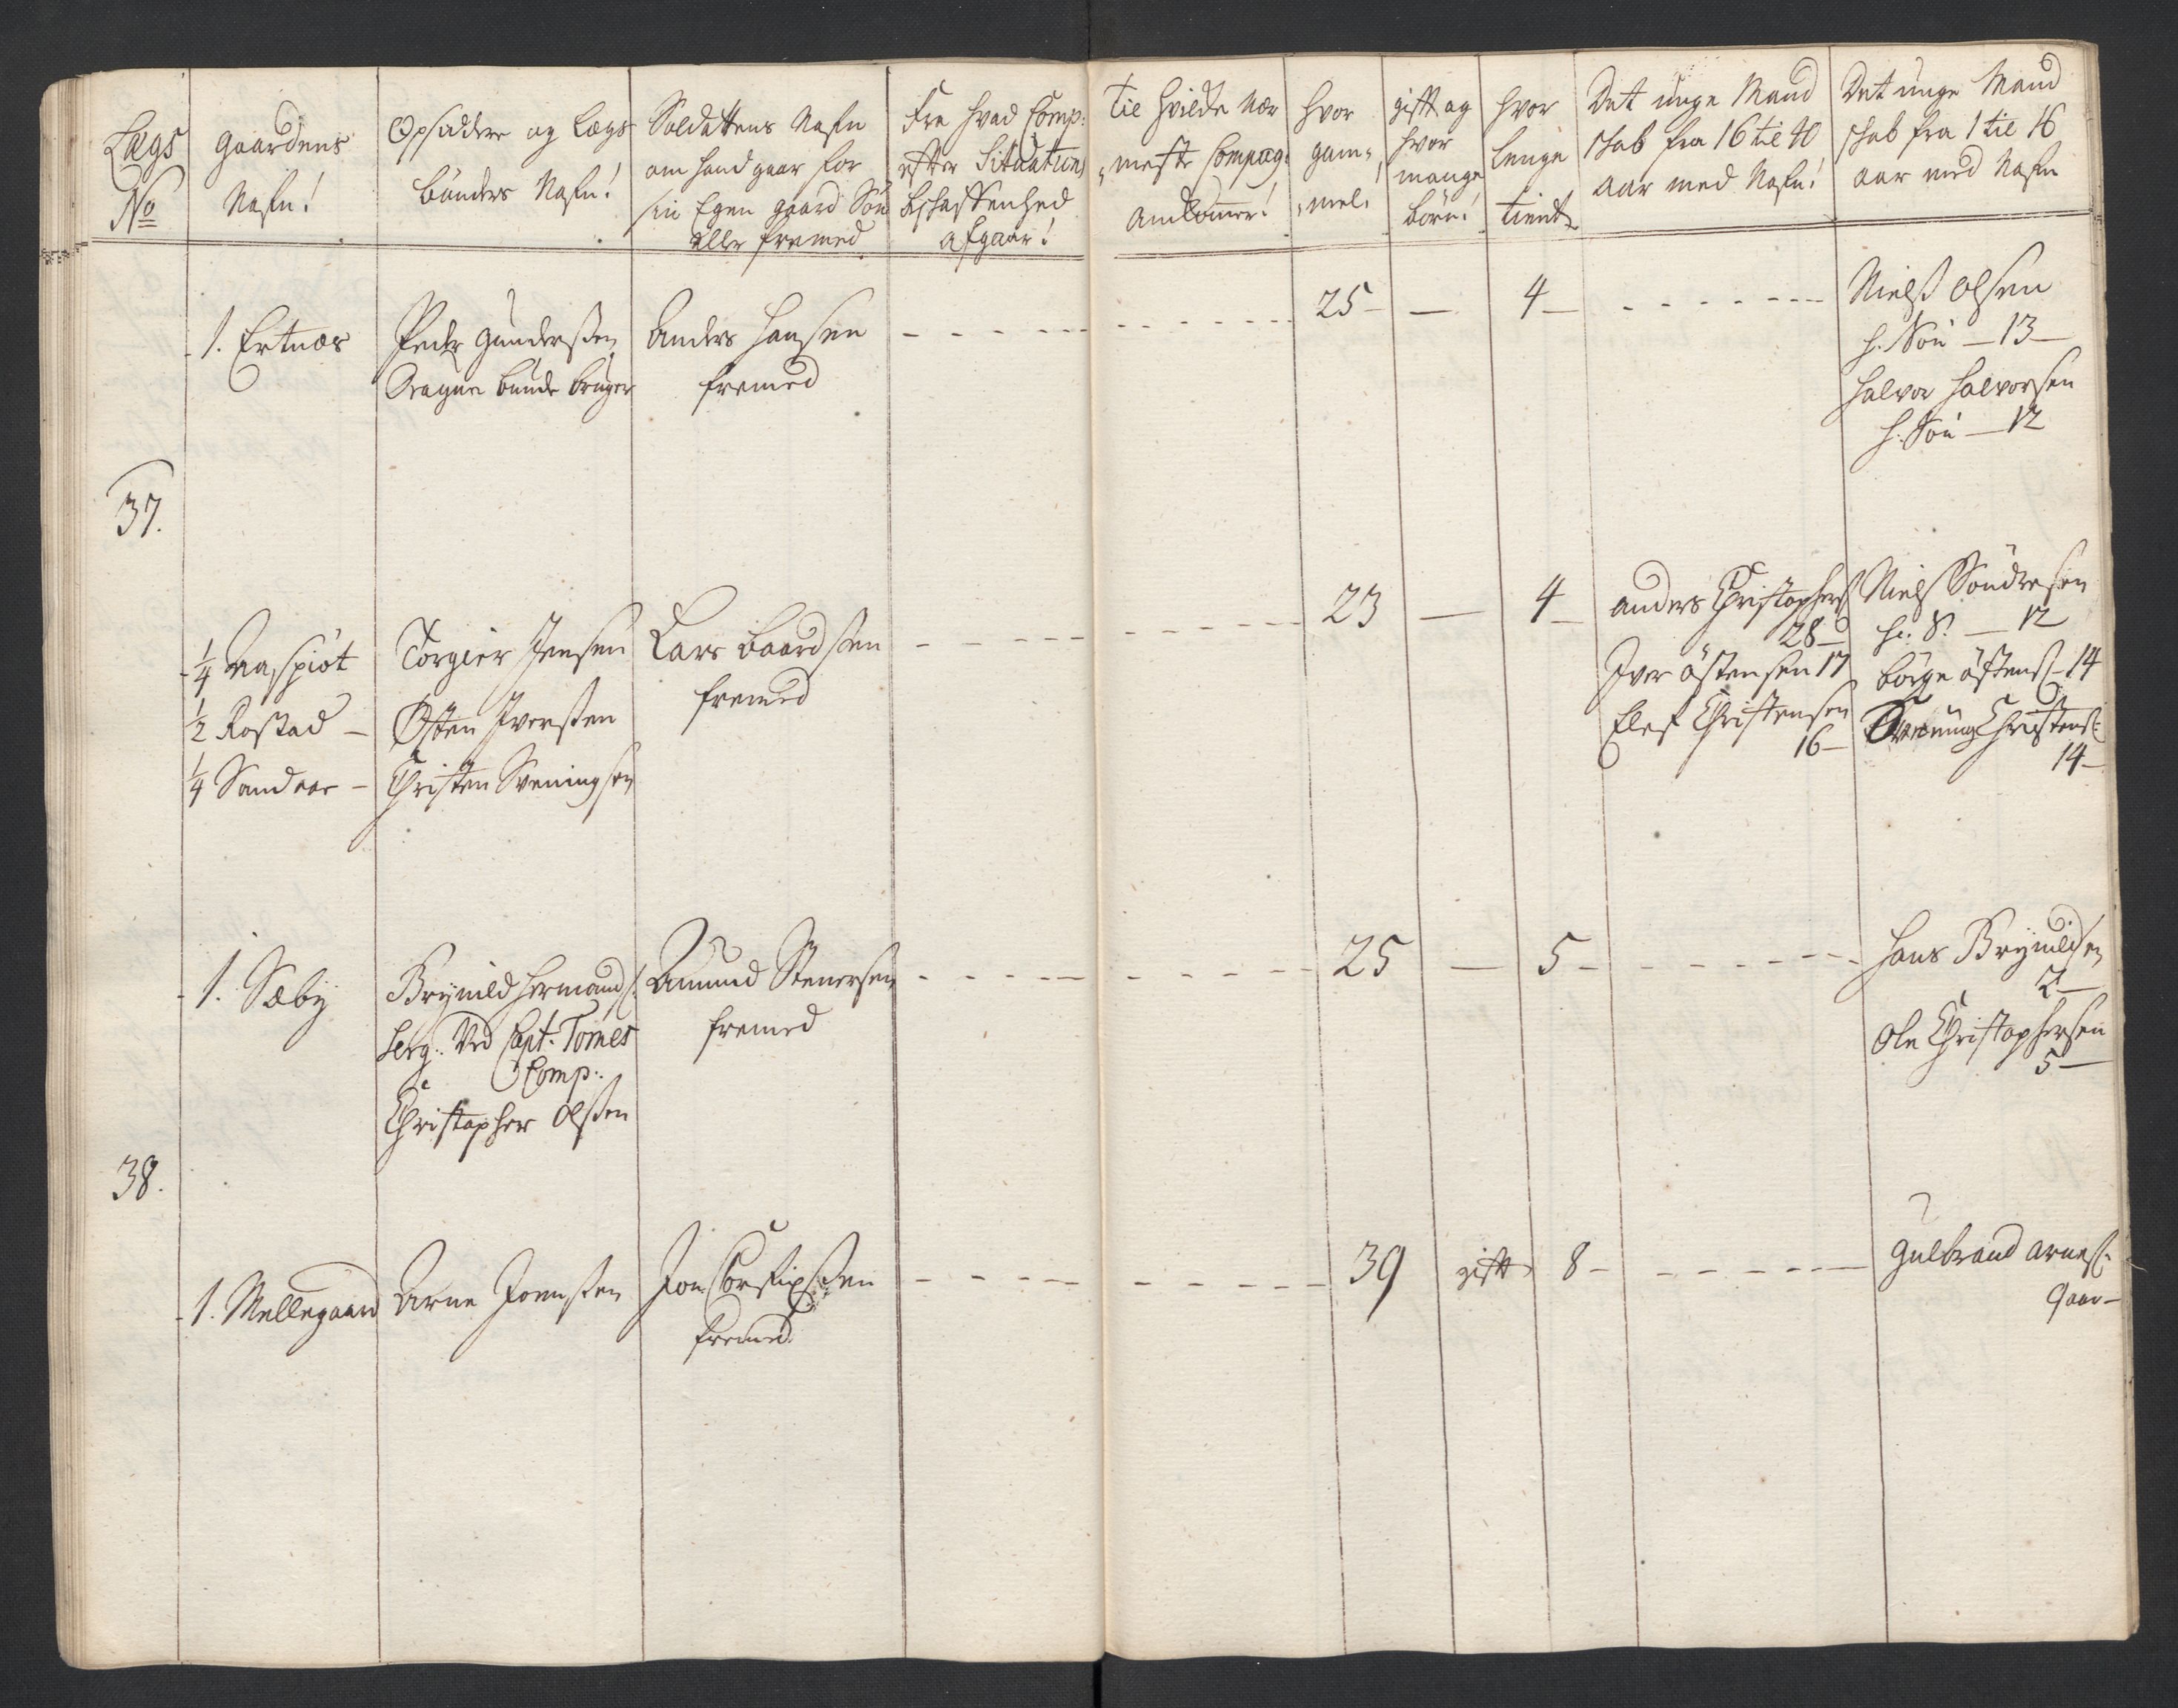 Lægs
No
Gaardens
Nafn!
Opsiddere og Lægs
bønders Nafn!
Soldattens Nafn
om hand gaar for
sin Egen gaard Søn
eller fremed
Fra hvad Comp:
efter Situation
beschaffenhed
afgaar!
Til hvilcke nær
meste Compag:
ankommer!
hvor
gam„
„mel!
gift og
hvor
mange
børn!
hvor
lenge
tient
Det unge Mand
schab fra 16 til 40
aar med Nafn!
Det unge Mand
schab fra 1 til 16
aar med Nafn
37.
1. Ertnæs
Peder Gundersen
bunde bruger
Anders Hansen
fremed
25 — — 4 —
Nielss Olsen
h. Søn — 13 —
Halvor Halvorsen
h. Søn — 12
1/4 Naspiøt
1/2 Rostad —
1/4 Sandaae —
Torgier Jensen
Østen Iversen
Christen Sveningsen
Lars Baardsen
fremed
23 — 4 —
Anders Christophers
28 —
Iver Østensen 17
Elef Christensen
16 —
Niels Søndresen
h: S: — 12
Børge Østens: 14
Svening Christens:
14 —
38.
1. Sæby
Brynild Hermands:
Serg: Ved Capt: Tomes
Comp:
Christopher Olsen
Amund Stenersen
fremed
25 — 5 —
Hans Brynildsen
2 —
Ole Christophersen
5 —
1. Mellegaard
Arne Joensen
Jon
fremed
39 gift 8 —
Gulbrand Arnes:
9 aar —